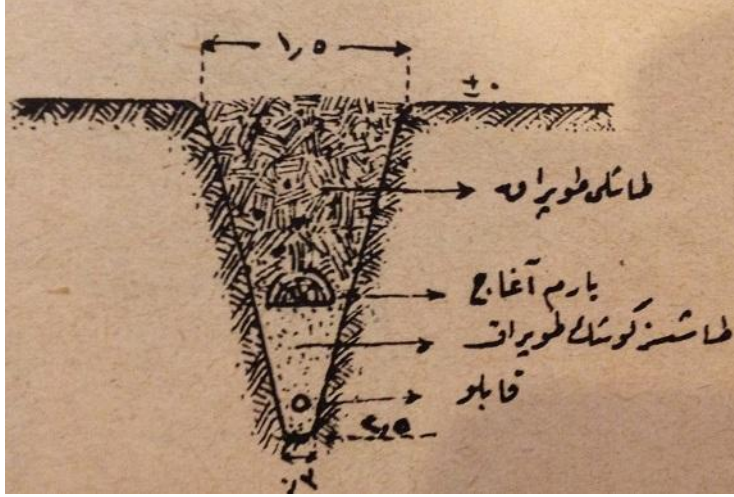 ١٫٥
± ٠
طاشلی طوپراق
یارم آغاج
طاشسز كوشك طوپراق
قابلو